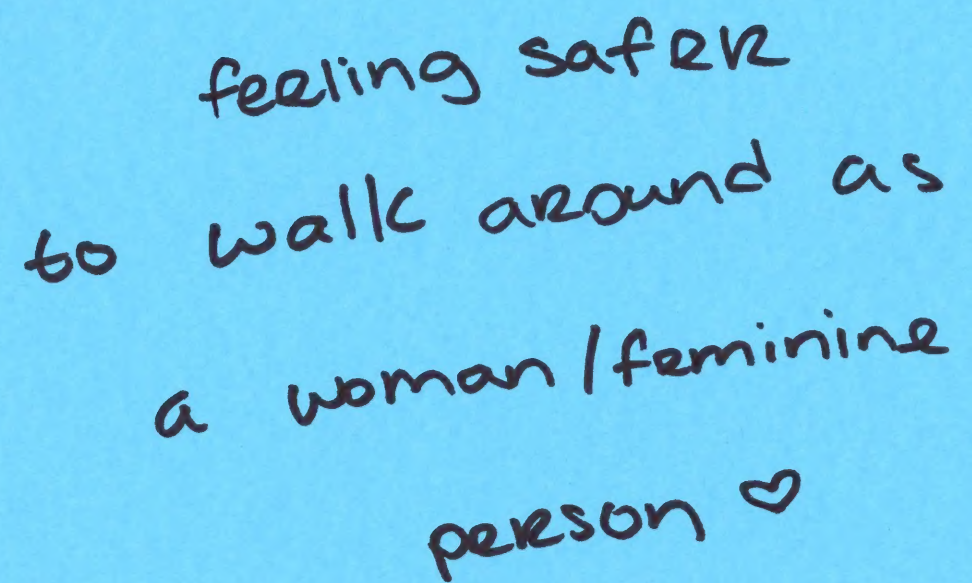 feeling safer
to walk around as
a woman/feminine
person ♡